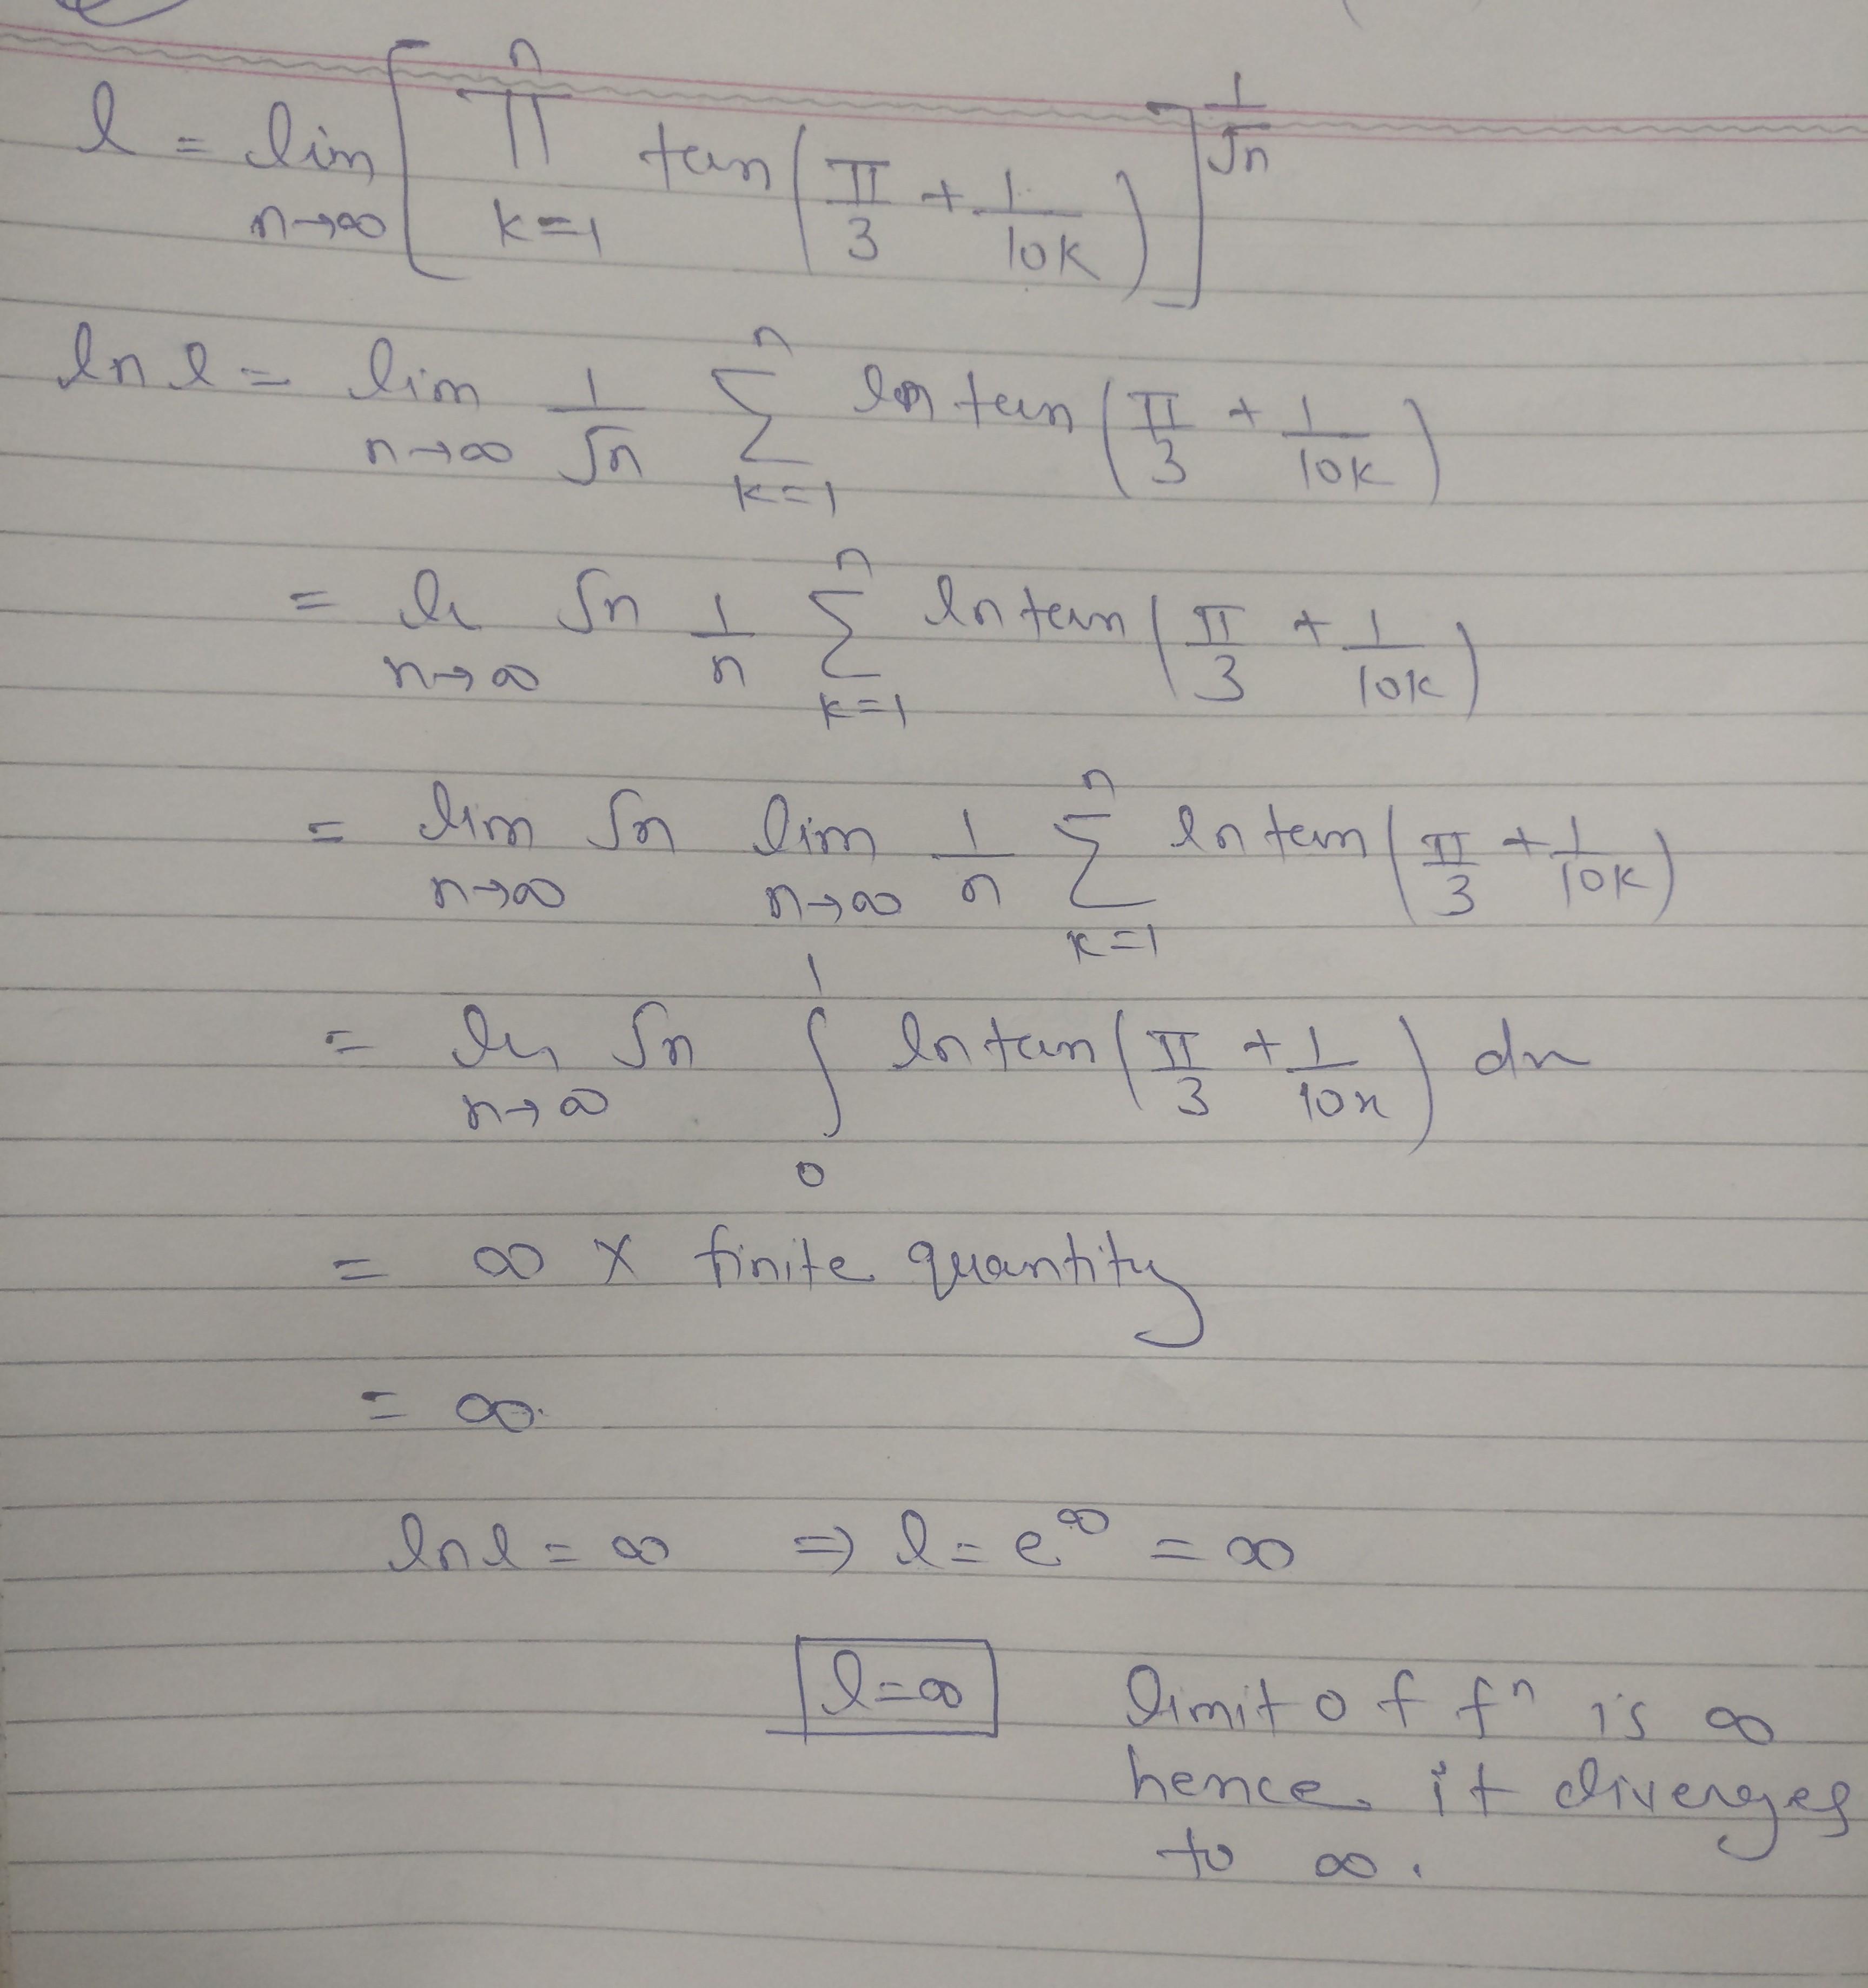 l = lim n→∞ [ n ∏ k=1 tan ( π/3 + 1/10k ) ] 1/√n
ln l = lim n→∞ 1/√n n ∑ k=1 ln tan ( π/3 + 1/10k )
= li n→∞ √n 1/n n ∑ k=1 ln tan ( π/3 + 1/10k )
= lim n→∞ √n lim n→∞ 1/n n ∑ k=1 ln tan ( π/3 + 1/10k )
= li n→∞ √n 1 ∫ 0 ln tan ( π/3 + 1/10x ) dx
= ∞ × finite quantity
= ∞.
ln l = ∞ ⇒ l = e^∞ = ∞
l = ∞ limit of fⁿ is ∞
hence. it diverges
to ∞.